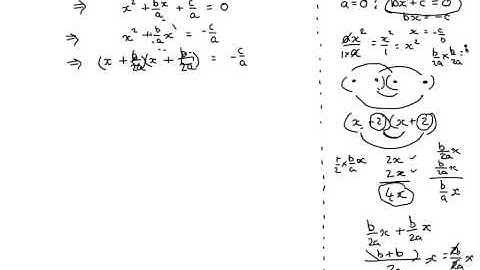 ⇒ x² + bx/a + c/a = 0
⇒ x² + b/a x¹ = -c/a
⇒ (x + b/2a)(x + b/2a) = -c/a
a=0 : bx+c = 0
bx = -c
x = -c/b
ax²/1×a = x²/1 = x²
b/2a × b/2a =
(x +2)(x + 2)
1/2 × b/a x
2x ✓
2x ✓
4x
b/2a x
b/2a x
b/a x
b/2a x + b/2a x
(b+b)/2a x = 2b/2a x